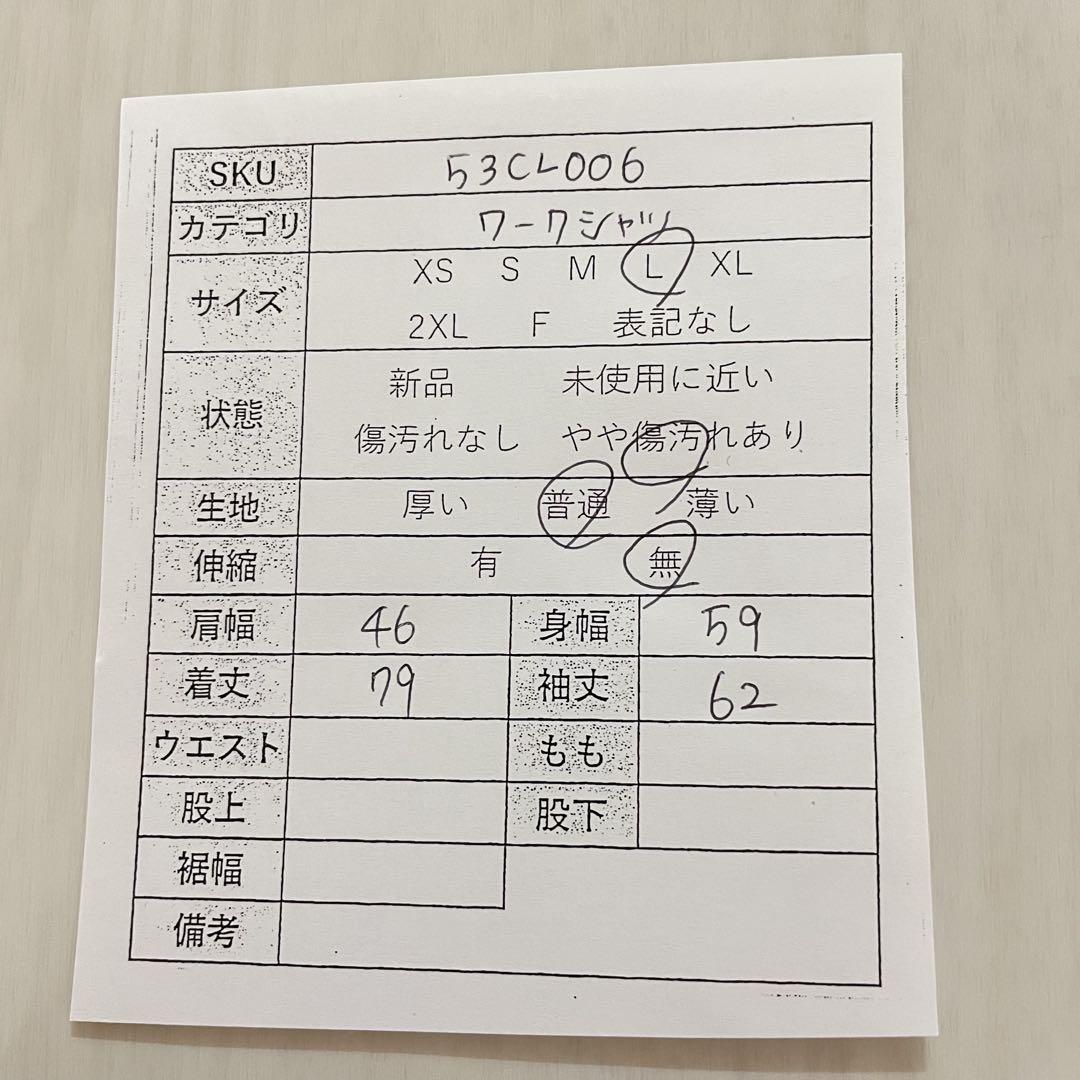 SKU 53CL006
カテゴリ ワークシャツ
サイズ XS S M L XL
2XL F 表記なし
状態 新品 未使用に近い
傷汚れなし やや傷汚れあり
生地 厚い 普通 薄い
伸縮 有 無
肩幅 46 身幅 59
着丈 79 袖丈 62
ウエスト もも
股上 股下
裾幅
備考